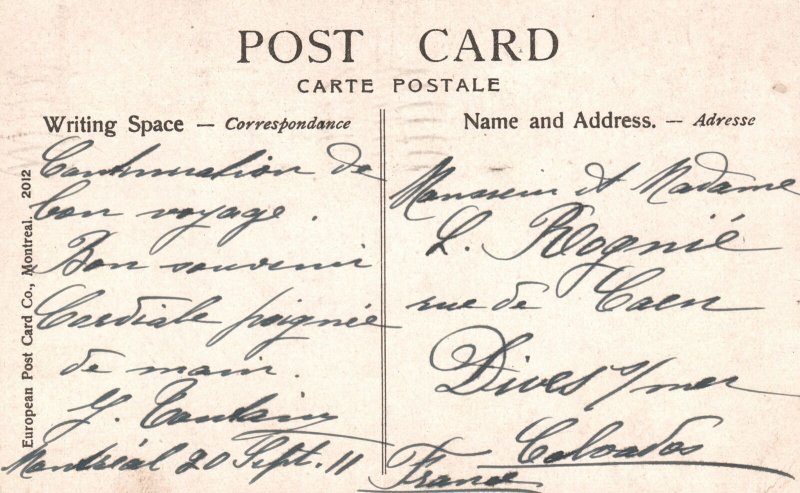 POST CARD
CARTE POSTALE
Writing Space — Correspondance
Continuation de
bon voyage.
Bon souvenir
Cordiale poignée
de main.
Montréal 20 Sept. 11
European Post Card Co., Montreal. 2012
Name and Address. — Adresse
Monsieur et Madame
L. Rognié
rue de Caen
Dives s/mer
Calvados
France